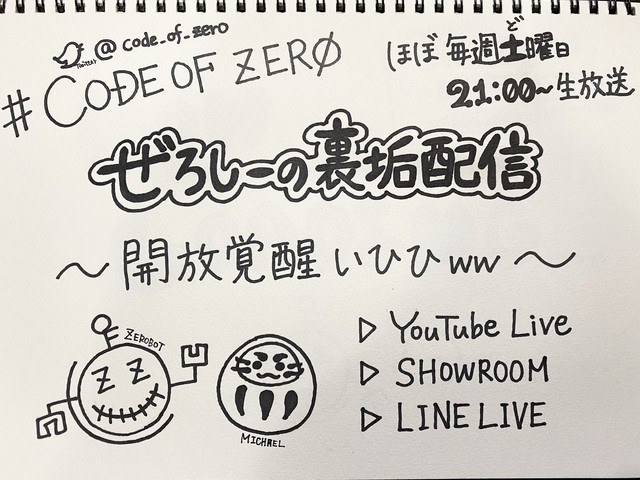 Twitter @code_of_zero
#CODE OF ZERØ
ほぼ毎週土曜日
ど
21:00~生放送
ぜろしーの裏垢配信
～開放覚醒いひひww～
ZEROBOT
Z Z
MICHAEL
▷ YouTube Live
▷ SHOWROOM
▷ LINE LIVE